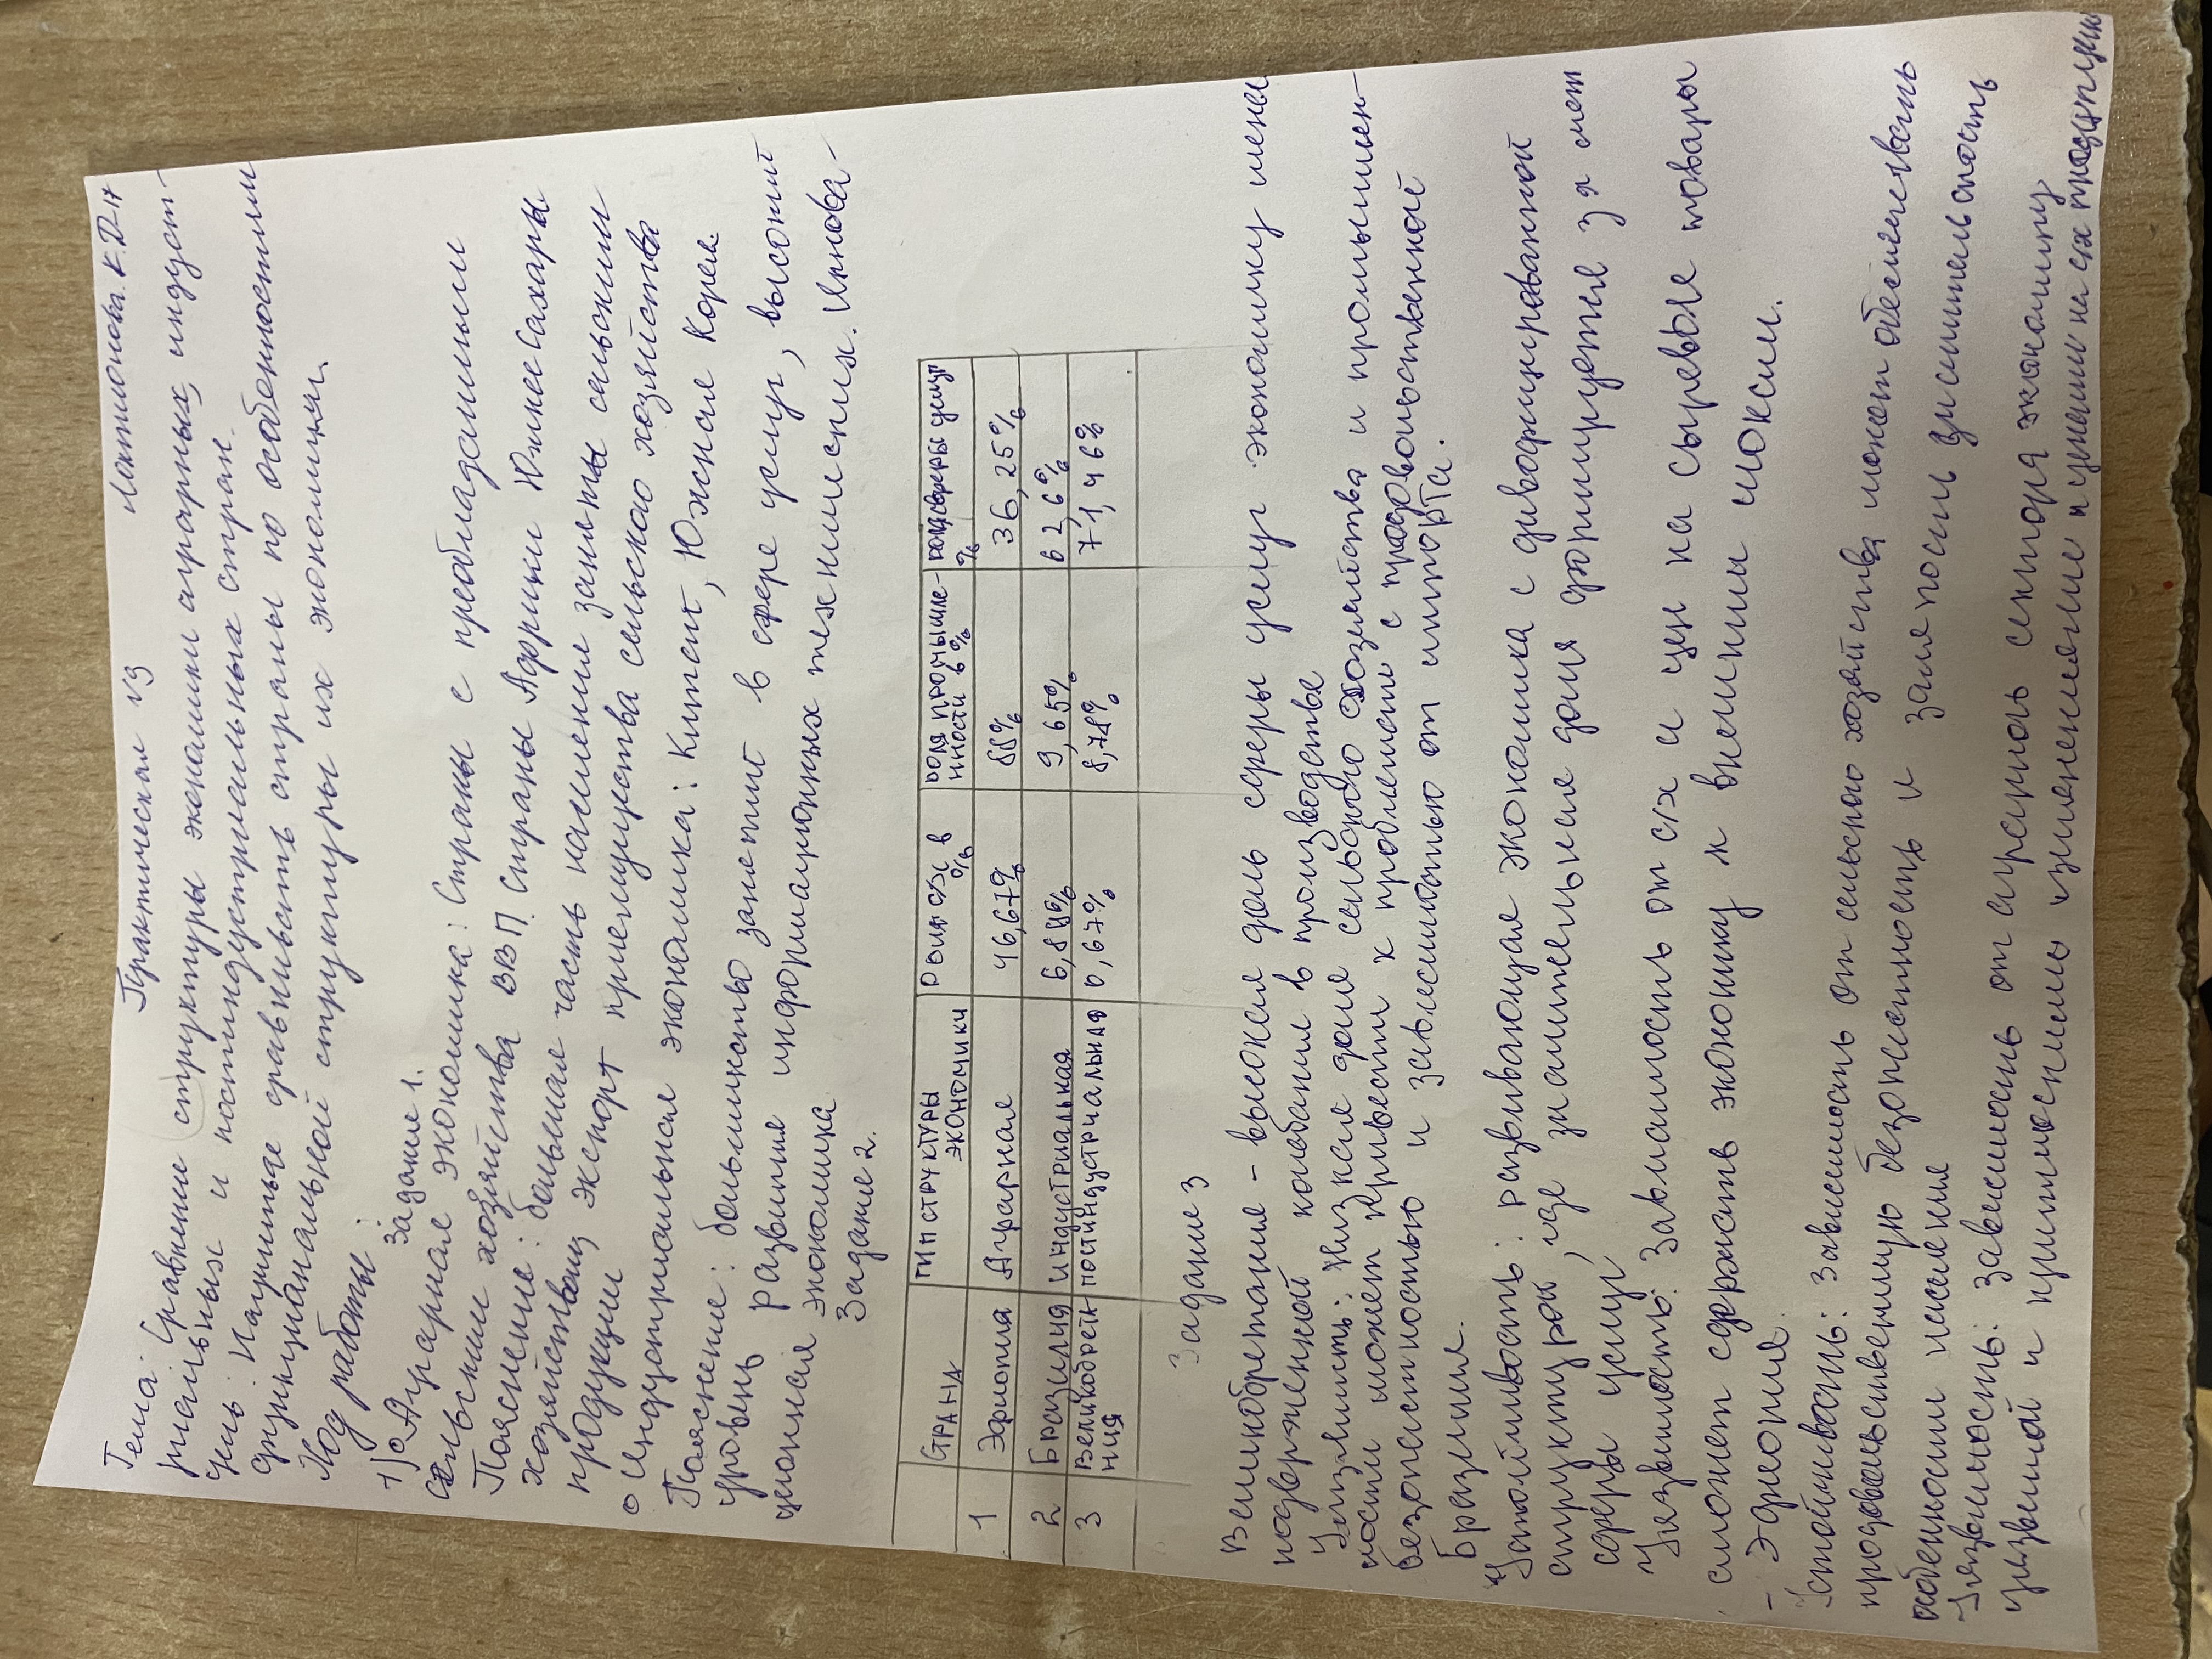 Практическая √3 Локтионова. К.Д-14
Тема: Сравнение структуры экономики аграрных, индуст-
риальных и постиндустриальных стран.
Цель: Научиться сравнивать страны по особенностям
функциональной структуры их экономики.
Ход работы:
Задание 1.
1) о Аграрная экономика: Страны с преобладанием
сельским хозяйства ВВП. Страны Африки Южнее Сахары
Пояснение: большая часть населения занята сельским
хозяйством, экспорт преимущества сельского хозяйства
продукции
о Индустриальная экономика: Китай, Южная Корея.
Пояснение: большинство занятий в сфере услуг, высокий
уровень развития информационных технологиях. Иннова-
ционная экономика
Задание 2.
СТРАНА ТИП СТРУКТУРЫ ЭКОНОМИКИ Доля с/х в % Доля промышле- нности в % доля сферы услуг %
1 Эфиопия Аграрная 46,67% 88% 36,25%
2 Бразилия Индустриальная 6,88% 9,65% 62,6%
3 Великобрета- ния постиндустриальная 0,67% 8,78% 71,46%
Задание 3
Великобретание - высокая доль сферы услуг экономику мены
подверженной колебания в производстве
Уязвимость: Низкая доля сельского хозяйства и промышлен-
ности может привести к проблемасте с продовольственной
безопастностью и зависимостью от импорта.
Бразилия.
Устойчивость: развивающая экономика с диводицированной
структурой, где значительная доля формируется за счет
сферы услуг
Уезвимость: Завмаимость от с/х и цен на сыревые товары
сможет сдержать экономику к внешним шокам.
- Эфиопия.
Устойчивость: Зависимость от сельского хозяйства может обеспечевать
продовольственную безопастность и занятость значительность
особенности населения
Уязвимость: завесимость от аграрноль сектора экономику
уязвимой к климатеским изменениям и ценами на сх продукции